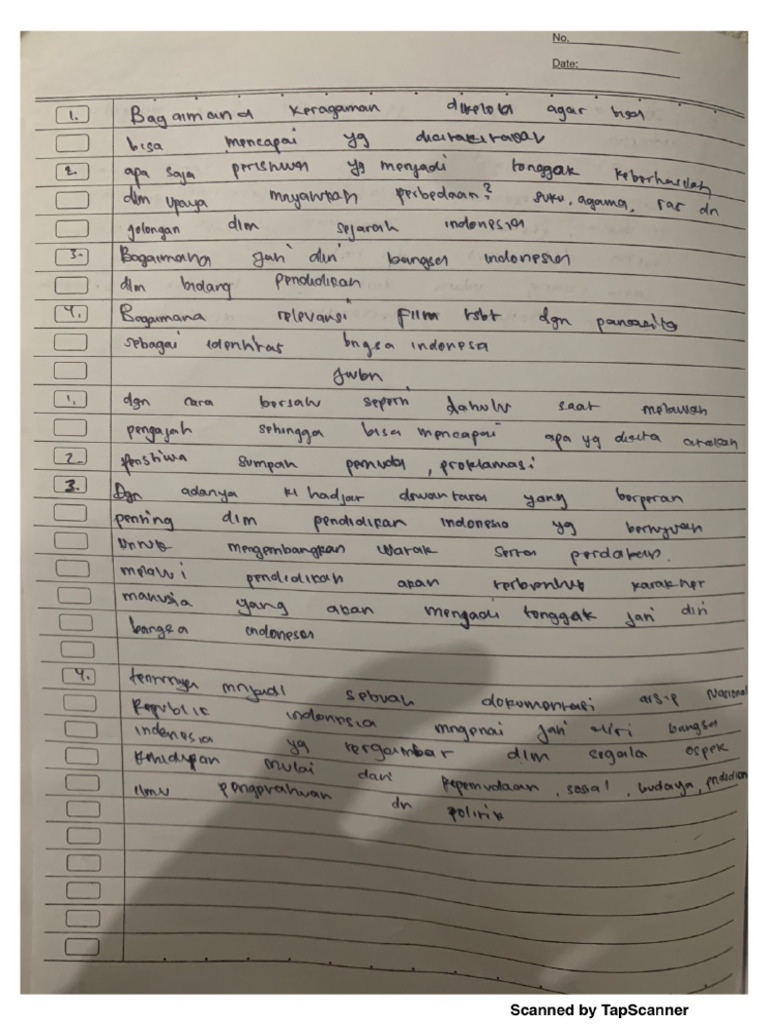 No.
Date:
1. Bagaimana keragaman dikelola agar bisa
bisa mencapai yg dicitakitakan
2. apa saja peristiwa yg menjadi tonggak keberhasilan
dlm upaya mnyawtkan perbedaan? suku, agama, ras dn
golongan dlm sejarah indonesia
3. Bagaimana jati diri bangsa indonesia
dlm bidang pendidikan
4. Bagaimana relevansi film tsbt dgn pancasila
sebagai identitas bngsa indonesa
Jwbn
1. dgn cara bersatu seperti dahulu saat melawan
pengajah sehingga bisa mencapai apa yg dicita citakan
2. Peristiwa sumpah pemuda, proklamasi
3. Dgn adanya ki hadjar dewantara yang berperan
penting dlm pendidikan indonesia yg bertujuan
untuk mengembangkan watak serta
melalui pendidikan akan terbentuk karakter
manusia yang akan menjadi tonggak jati diri
bangsa indonesia
4. tentunya mnjadi sebuah dokumentasi arsip Nasional
Republik indonesia mngenai jati diri bangsa
indonesia yg tergambar dlm segala aspek
khidupan mulai dari kepemudaan, sosial, budaya, pndidian
ilmu pengetahuan dn politik
Scanned by TapScanner